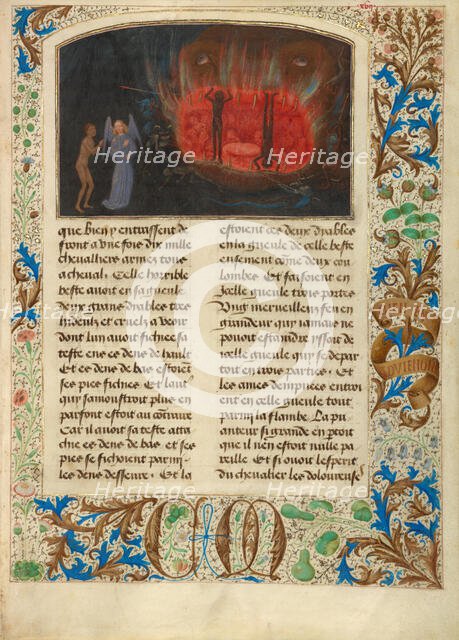 que bien y entrassent de
front a vne fois dix mille
cheualliers armez tous
a cheual. Celle horrible
beste auoit en sa gueule
deux grans dyables tres
hideulx et cruelz a veoir
dont lun auoit fichee sa
teste en ses dens de hault
Et ses dens de bas estoiẽt
ses piez fichies Et laut̃
qui samoustroit plus en
parfont estoit au contraire
Car il auoit sa teste atta
chie es dens de bas et ses
piez se fichoient parmy
les dens desseure. Et la
estoient ces deux dyables
en la gueule de celle beste
ensement come deux cou
lombes Et faisoient en
ycelle gueule trois portes
Vng merueilleux feu en
grandeur qui iamais ne
pouoit estaindre yssoit de
ycelle gueule qui se depar
toit en trois parties Et
les ames dempnees entroi
ent en celle gueule tout
parmy la flambe. La pu
anteur si grande en partoit
que il nen estoit nulle pa
reille Et si ouoit lesperit
du cheualier les doloureuse
Heritage
Heritage
Heritage
Heritage
Heritage
Heritage